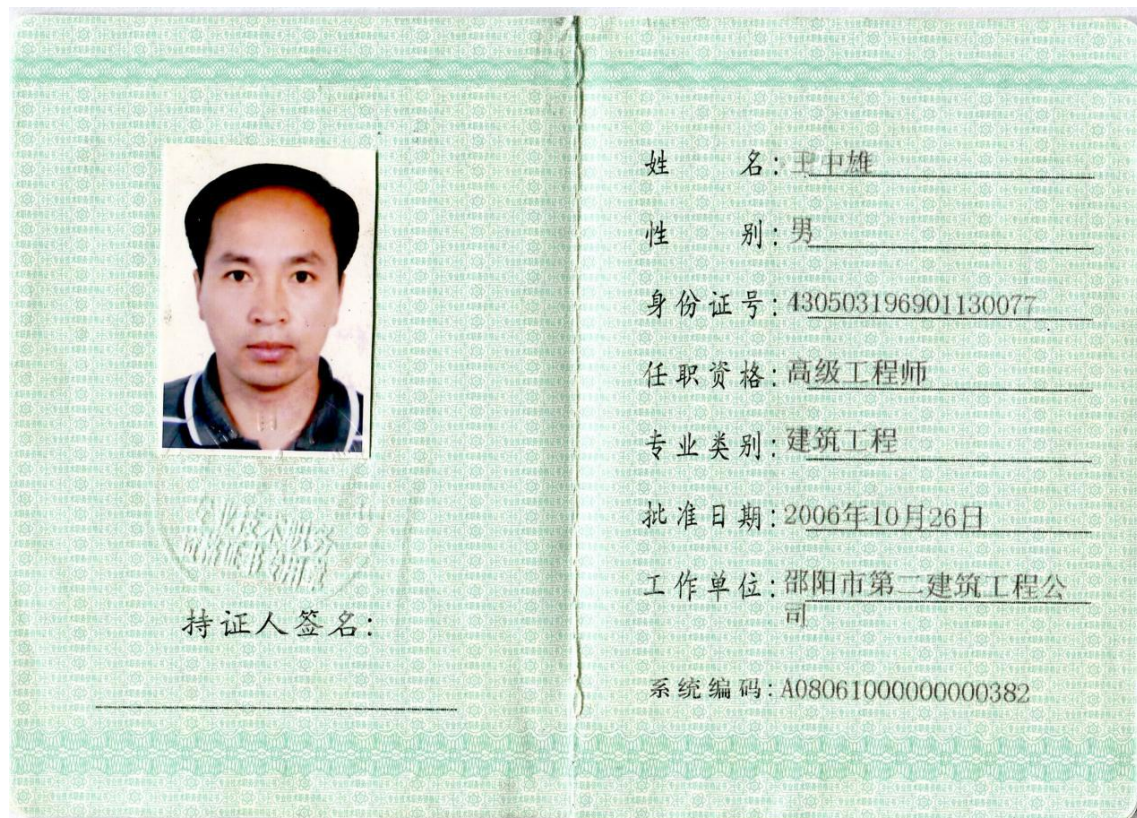 专业技术职务
资格证书专用章
持证人签名:
姓 名:王中雄
性 别:男
身份证号:430503196901130077
任职资格:高级工程师
专业类别:建筑工程
批准日期:2006年10月26日
工作单位:邵阳市第二建筑工程公
司
系统编码:A08061000000000382